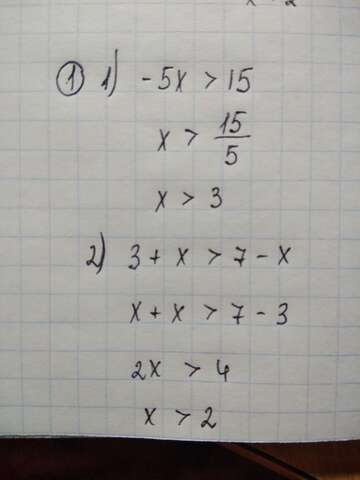 ① 1) -5x > 15
x > 15/5
x > 3
2) 3 + x > 7 - x
x + x > 7 - 3
2x > 4
x > 2